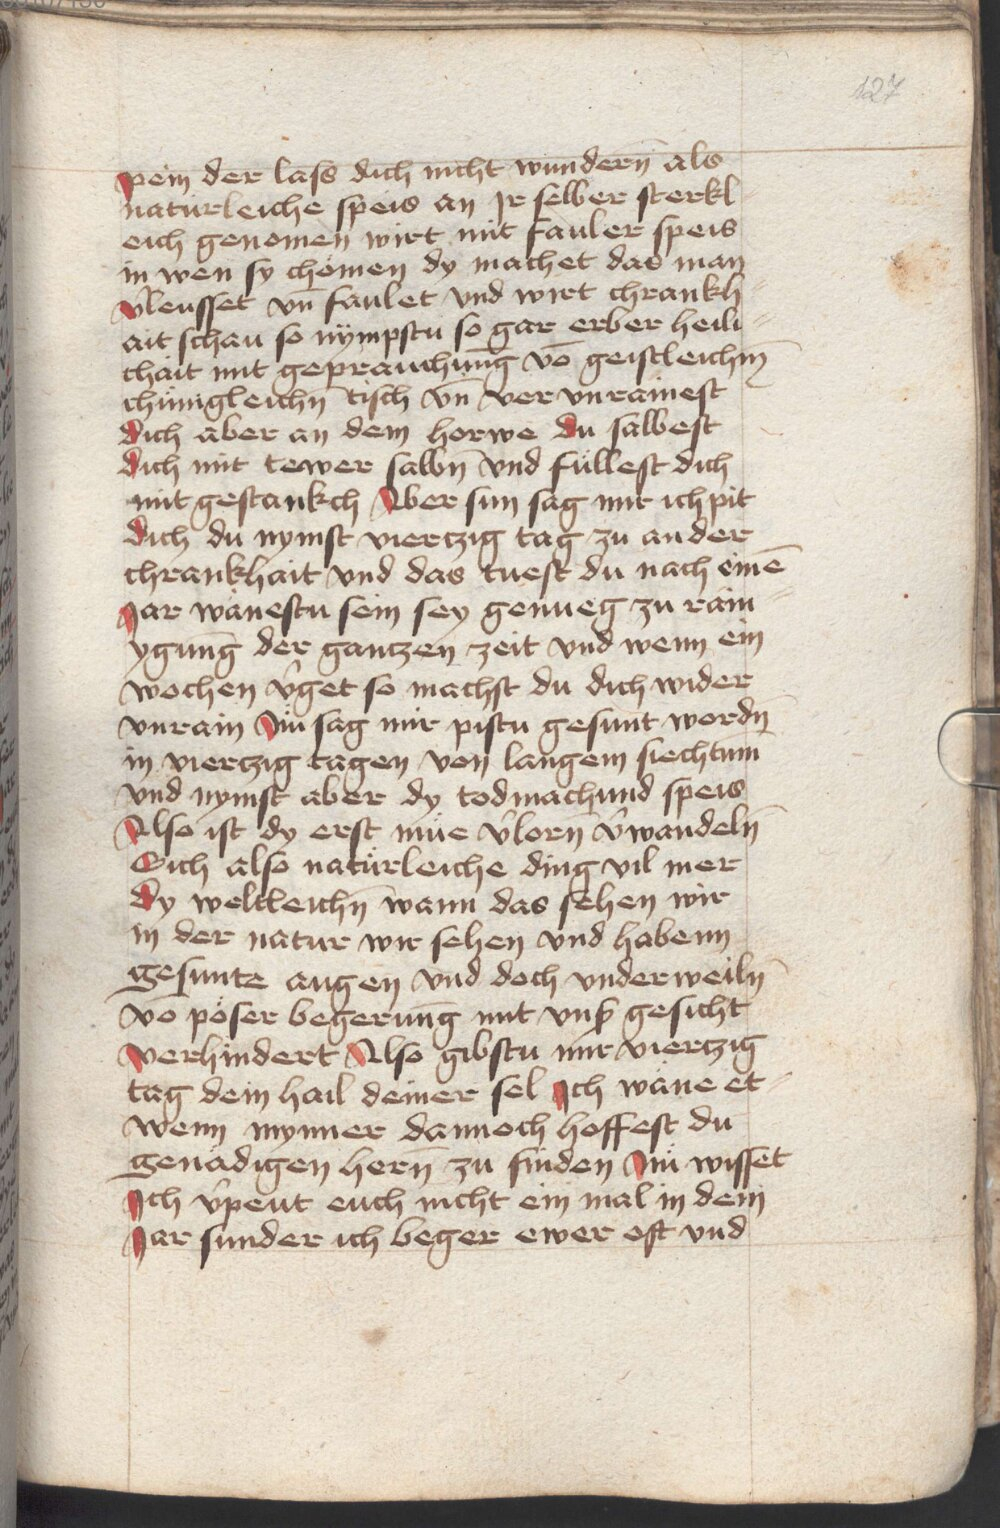 127
pein der lass dich nicht wundern̄ als
naturleiche speis an Jr selber sterkl-
eich genomen wirt mit fauler speis
in wen sy chömen dy machet das man
v̉leusset vn̄ faulet vnd wirt chrankh-
ait schau so nÿmpstu so gar erber heili-
chait mit geprauchung vō geistleichn̄
chünigleichn̄ tisch vn̄ ver vnrainest
dich aber an dem horwe du salbest
dich mit tewer salbn̄ vnd füllest dich
mit gestankch Aber sun sag mir ich pit
dich du nymst viertzig tag zu ander
chrankhait vnd das tuest du nach einē
Jar wänestu sein sey genueg zu rain-
ygung der gantzen zeit vnd wenn ein
wochen v̉get so machst du dich wider
vnrain Nu sag mir pistu gesunt wordn̄
in viertzig tagen von langem siechtum
vnd nymst aber dy todmachund speis
Also ist dy erst müe v̉lorn̄ v̉wandeln̄
Sich also natürleiche ding vil mer
dy weltleichn̄ wann das sehen wir
in der natur wir sehen vnd habenn
gesunte augen vnd doch vnderweiln̄
vō pöser begerung mit vnser gesicht
verhindert Also gibstu mir viertzig
tag dein hail deiner sel Ich wäne et-
wenn mynner dannoch hoffest du
genädigen hern̄ zu finden Nu wisset
Ich v̉peut euch nicht ein mal in dem
Jar sunder ich beger ewer oft vnd